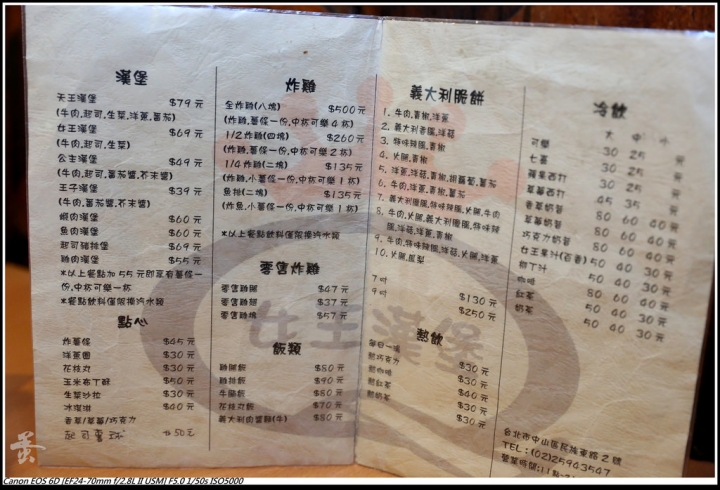 漢堡
天王漢堡 $79元
(牛肉.起司.生菜.洋蔥.番茄)
女王漢堡 $69元
(牛肉.起司.生菜)
公主漢堡 $49元
(牛肉.起司.番茄醬.芥末醬)
王子漢堡 $39元
(牛肉.番茄醬.芥末醬)
蝦肉漢堡 $60元
魚肉漢堡 $60元
起司豬排堡 $69元
雞肉漢堡 $55元
*以上餐點加55元即享有薯條一
份.中杯可樂一杯
*餐點飲料僅限換汽水類
點心
炸薯條 $45元
洋蔥圈 $30元
花枝丸 $30元
玉米布丁酥 $50元
生菜沙拉 $30元
冰淇淋 $40元
香草/草莓/巧克力
起司雪球 $50元
炸雞
全炸雞(八塊) $500元
(炸雞.薯條一份.中杯可樂4杯)
1/2炸雞(四塊) $260元
(炸雞.薯條一份.中杯可樂2杯)
1/4炸雞(二塊) $135元
(炸雞.小薯條一份.中杯可樂1杯)
魚排(二塊) $135元
(炸魚.小薯條一份.中杯可樂1杯)
*以上餐點飲料僅限換汽水類
零售炸雞
零售雞胸 $47元
零售雞腿 $37元
零售雞塊 $57元
飯類
雞腿飯 $80元
雞排飯 $90元
牛腩飯 $80元
花枝丸飯 $70元
義大利肉醬麵(牛) $80元
義大利脆餅
1. 牛肉.青椒.洋蔥
2. 義大利香腸.洋菇
3. 特味辣腸.青椒
4. 火腿.青椒
5. 洋蔥.洋菇.青椒.胡蘿蔔.蕃茄
6. 牛肉.洋蔥.青椒.蕃茄
7. 義大利臘腸.火腿.牛肉
8. 牛肉.火腿.義大利臘腸.特味辣
腸.洋菇.洋蔥.青椒
9. 牛肉.特味辣腸.火腿.洋蔥
10. 火腿.鳳梨
7吋 $130元
9吋 $250元
熱飲
每日一湯 $30元
熱巧克力 $30元
熱咖啡 $40元
熱紅茶 $30元
熱奶茶 $40元
冷飲
大 中 小
可樂 30 25 元
七喜 30 25 元
蘋果西打 30 25 元
草莓西打 45 35 元
香草奶昔 80 60 40 元
草莓奶昔 80 60 40 元
巧克力奶昔 80 60 40 元
女王果汁(百香) 50 40 30 元
柳丁汁 50 40 30 元
咖啡 80 60 40 元
紅茶 50 40 30 元
奶茶 50 40 30 元
女王漢堡
台北市中山區民族東路2號
TEL:(02)25943547
營業時間:11點
蛋
Canon EOS 6D [EF24-70mm f/2.8L II USM] F5.0 1/50s ISO5000